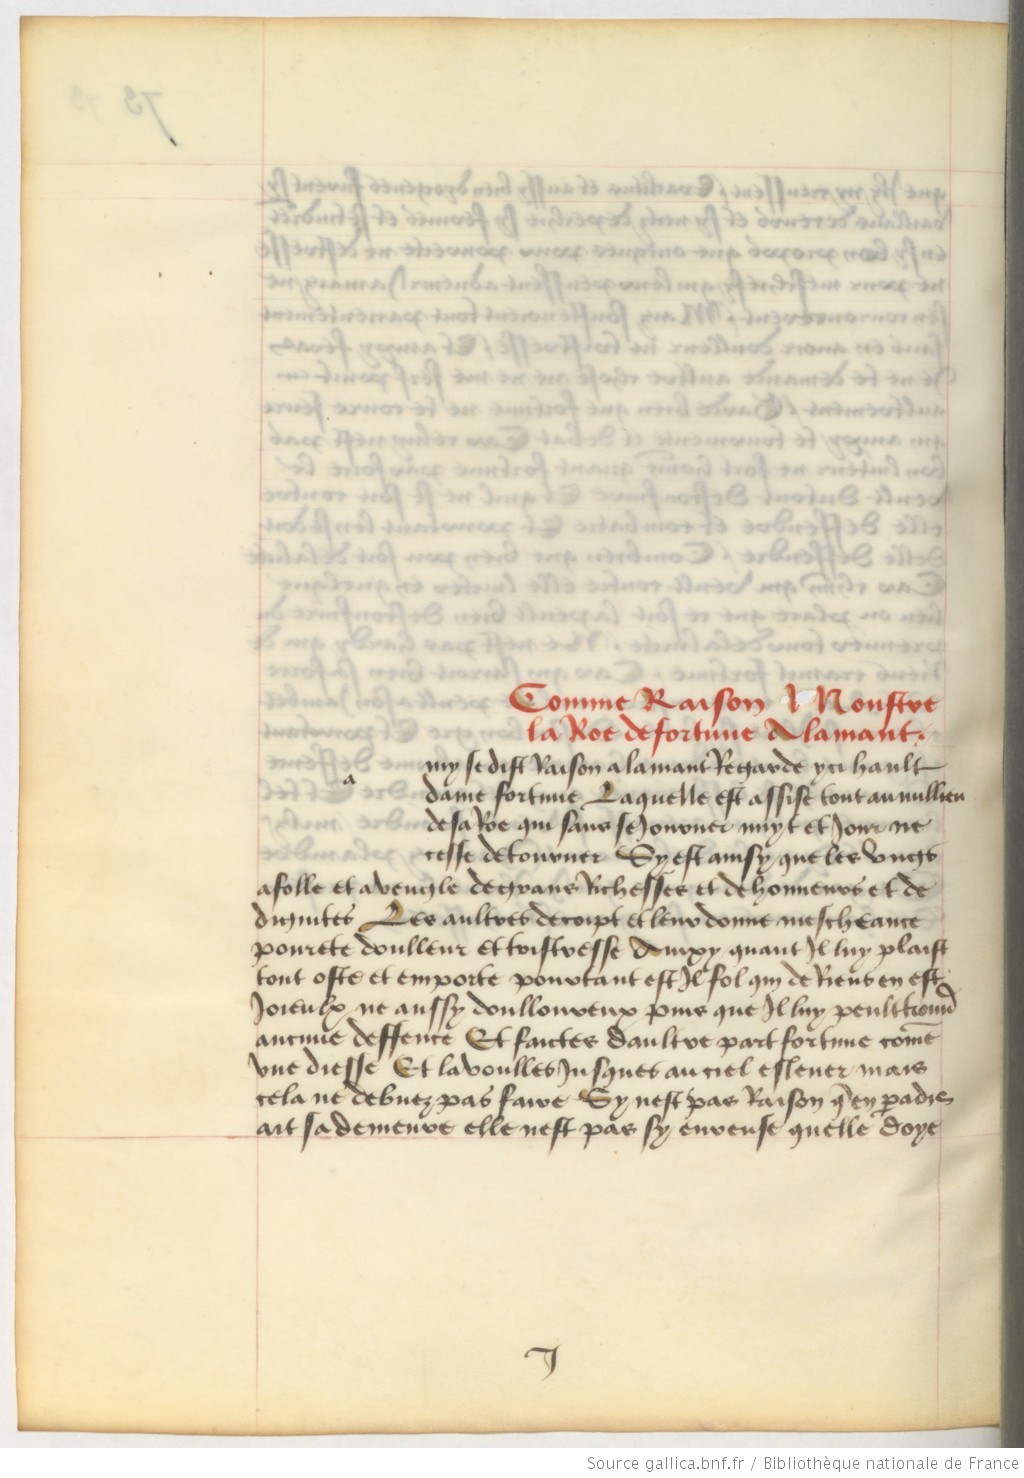 Comme Raison Monstre
la Roe defortune Alamant.
a
my se dist Raison a lamant Regarde ycy hault
dame fortune Laquelle est assise tout au millieu
de sa Roe qui sans seJourner nuyt et Jour ne
cesse detourner Sy est ainsy que les vngs
afolle et aveugle degrans Richesses et dehonneurs et de
dignites Les aultres decoipt et leur donne mescheance
pourete doulleur et tristresse Auxy quant Il luy plaist
tout oste et emporte pourtant est Il fol qui de Riens en est
Joieulx ne aussy doulloureux puis que Il luy peult
aucune deffence Et faictes daultre part fortune come
vne diesse Et la voulles Jusques au ciel esleuer mais
cela ne debuez pas faire Sy nest pas Raison q̃ en padis
ait sa demeure elle nest pas sy eureuse quelle doye
J
Source gallica.bnf.fr / Bibliothèque nationale de France